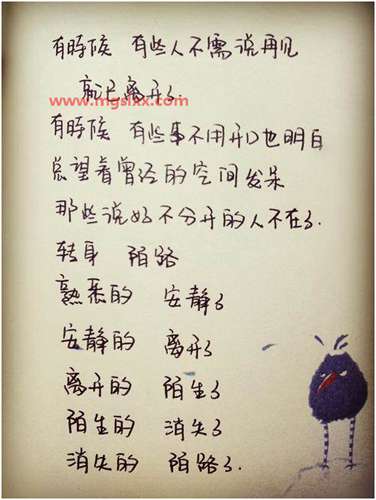 有時候 有些人不需说再见
就已离开了
www.mgslxx.com
有時候 有些事不用开口也明白
总望着曾经的空间发呆
那些说好不分开的人不在了.
转身 陌路
熟悉的 安静了
安静的 离开了
离开的 陌生了
陌生的 消失了
消失的 陌路了.